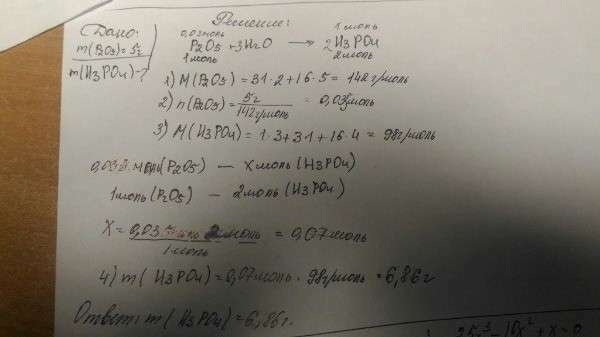 Решение:
Дано:
m(P2O5)=5г
m(H3PO4)-?
0,03моль 1моль
P2O5 + 3H2O → 2H3PO4
1моль 2моль
1) M(P2O5) = 31·2+16·5 = 142г/моль
2) n(P2O5) = 5г/142г/моль = 0,035моль
3) M(H3PO4) = 1·3+31+16·4 = 98г/моль
0,035моль(P2O5) — x моль(H3PO4)
1моль(P2O5) — 2моль(H3PO4)
X = 0,035моль 2моль = 0,07моль
1моль
4) m(H3PO4) = 0,07моль · 98г/моль = 6,86г
Ответ: m(H3PO4) = 6,86г.